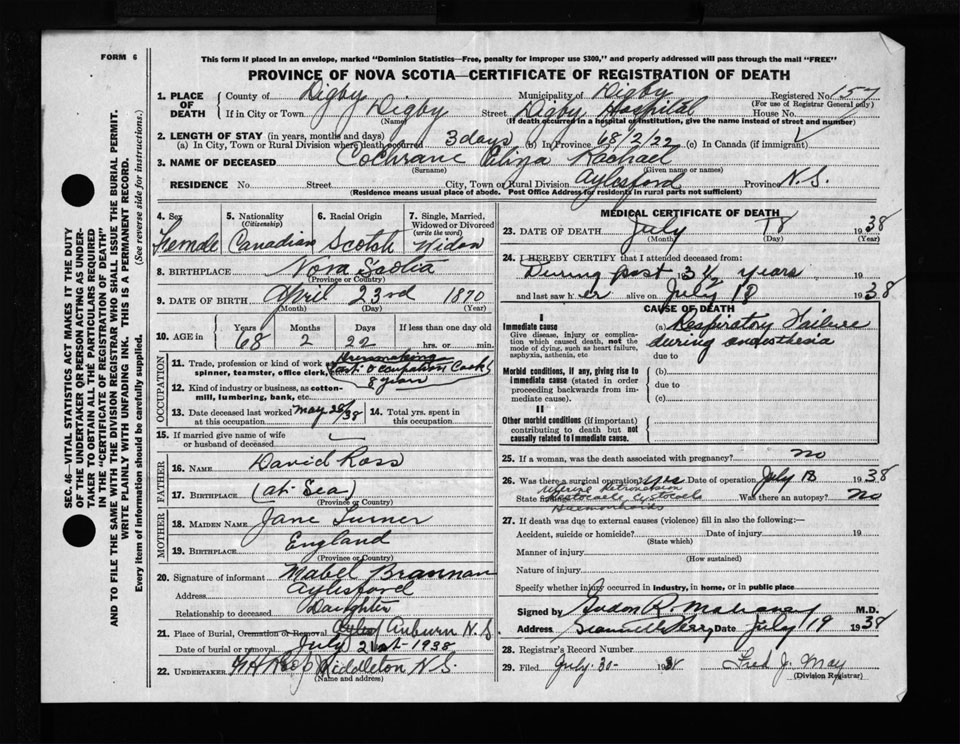 FORM 6
This form if placed in an envelope, marked "Dominion Statistics—Free, penalty for improper use $300," and properly addressed will pass through the mail "FREE"
PROVINCE OF NOVA SCOTIA—CERTIFICATE OF REGISTRATION OF DEATH
SEC. 46—VITAL STATISTICS ACT MAKES IT THE DUTY
OF THE UNDERTAKER OR PERSON ACTING AS UNDER-
TAKER TO OBTAIN ALL THE PARTICULARS REQUIRED
IN THE "CERTIFICATE OF REGISTRATION OF DEATH"
AND TO FILE THE SAME WITH THE DIVISION REGISTRAR WHO SHALL ISSUE THE BURIAL PERMIT.
WRITE PLAINLY WITH UNFADING INK. THIS IS A PERMANENT RECORD.
Every item of information should be carefully supplied. (See reverse side for instructions.)
1. PLACE OF DEATH County of Digby Municipality of Digby Registered No. 157
(For use of Registrar General only)
If in City or Town Digby Street Digby Hospital House No.
(Name) (If death occurred in a hospital or institution, give the name instead of street and number)
2. LENGTH OF STAY (in years, months and days)
(a) In City, Town or Rural Division where death occurred 3 days (b) In Province 68/2/22 (c) In Canada (if immigrant)
3. NAME OF DECEASED Cochrane Eliza Rachael
(Surname) (Given name or names)
RESIDENCE No. Street City, Town or Rural Division Aylesford Province N.S.
(Residence means usual place of abode. Post Office Address for residents in rural parts not sufficient)
4. Sex Female
5. Nationality (Citizenship) Canadian
6. Racial Origin Scotch
7. Single, Married, Widowed or Divorced (write the word) Widow
8. BIRTHPLACE Nova Scotia
(Province or Country)
9. DATE OF BIRTH April 23rd 1870
(Month) (Day) (Year)
10. AGE in Years Months Days If less than one day old
68 2 22 hrs. or min.
OCCUPATION
11. Trade, profession or kind of work as spinner, teamster, office clerk, Dressmaking
Last occupation Cook
8 years
12. Kind of industry or business, as cotton-mill, lumbering, bank, etc.
13. Date deceased last worked at this occupation May 28/38 14. Total yrs. spent in this occupation
15. If married give name of wife or husband of deceased —
FATHER
16. NAME David Ross
17. BIRTHPLACE (at Sea)
(Province or Country)
MOTHER
18. MAIDEN NAME Jane Turner
19. BIRTHPLACE England
(Province or Country)
20. Signature of informant Mabel Brannan
Address Aylesford
Relationship to deceased Daughter
21. Place of Burial, Cremation or Removal Auburn N.S
Date of burial or removal July 21st 1938
22. UNDERTAKER Middleton N.S.
(Name and address)
MEDICAL CERTIFICATE OF DEATH
23. DATE OF DEATH July 18 1938
(Month) (Day) (Year)
24. I HEREBY CERTIFY that I attended deceased from:
During past 3½ years 19
and last saw her alive on July 18 1938
CAUSE OF DEATH
I
Immediate cause
Give disease, injury or complication which caused death, not the mode of dying, such as heart failure, asphyxia, asthenia, etc
(a) Respiratory Failure
during anaesthesia
due to
Morbid conditions, if any, giving rise to immediate cause (stated in order proceeding backwards from immediate cause).
(b)
due to
(c)
II
Other morbid conditions (if important) contributing to death but not causally related to immediate cause.
25. If a woman, was the death associated with pregnancy? no
26. Was there a surgical operation? yes Date of operation July 18 1938
State findings Uterine Retroversion
Rectocele Cystocele
Haemorrhoids
Was there an autopsy? No
27. If death was due to external causes (violence) fill in also the following:—
Accident, suicide or homicide? Date of injury 19
(State which)
Manner of injury
(How sustained)
Nature of injury
Specify whether injury occurred in industry, in home, or in public place
Signed by Gordon R. Mahaney M.D.
Address Date July 19 1938
28. Registrar's Record Number
29. Filed July 30 1938 Fred J. May
(Division Registrar)